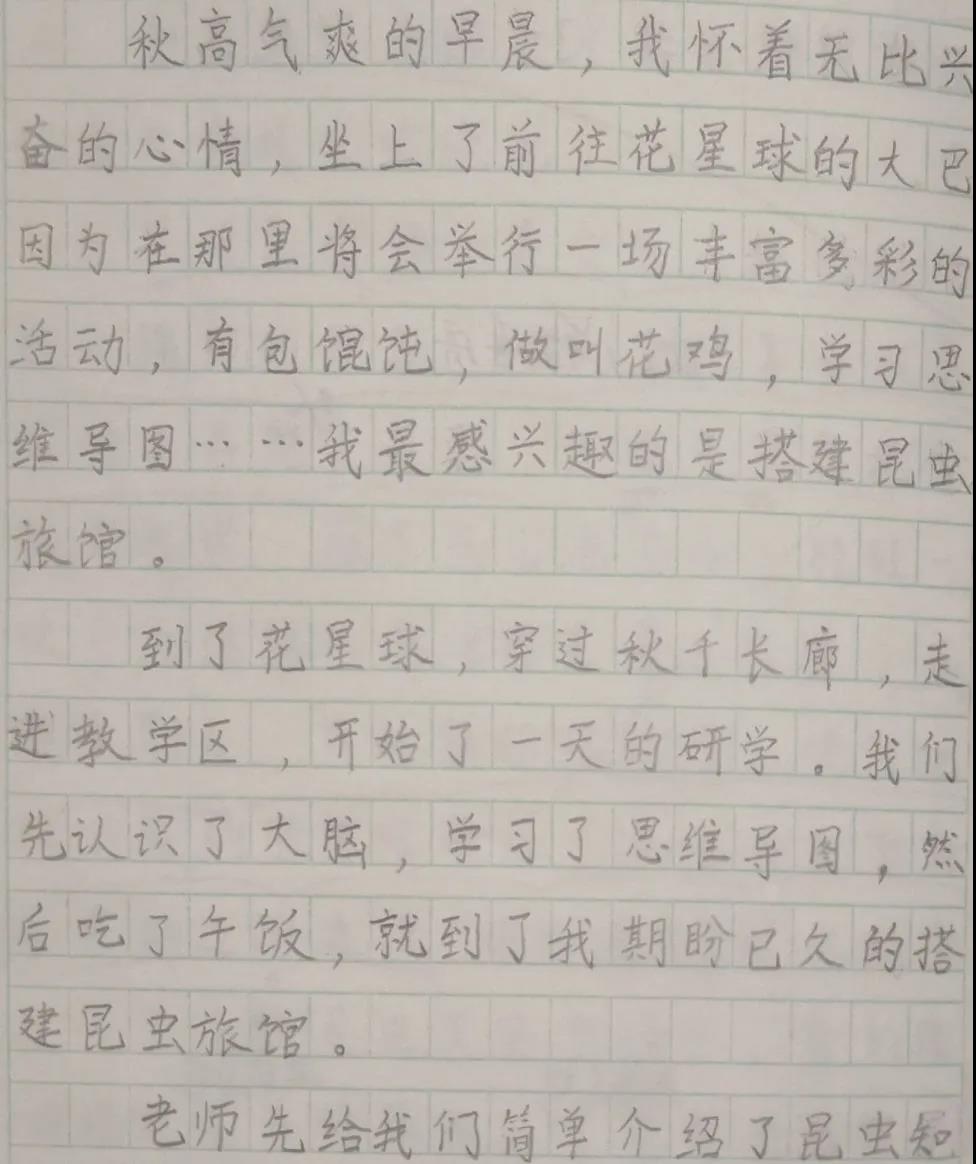 秋高气爽的早晨，我怀着无比兴
奋的心情，坐上了前往花星球的大巴
因为在那里将会举行一场丰富多彩的
活动，有包馄饨，做叫花鸡，学习思
维导图……我最感兴趣的是搭建昆虫
旅馆。
到了花星球，穿过秋千长廊，走
进教学区，开始了一天的研学。我们
先认识了大脑，学习了思维导图，然
后吃了午饭，就到了我期盼已久的搭
建昆虫旅馆。
老师先给我们简单介绍了昆虫知